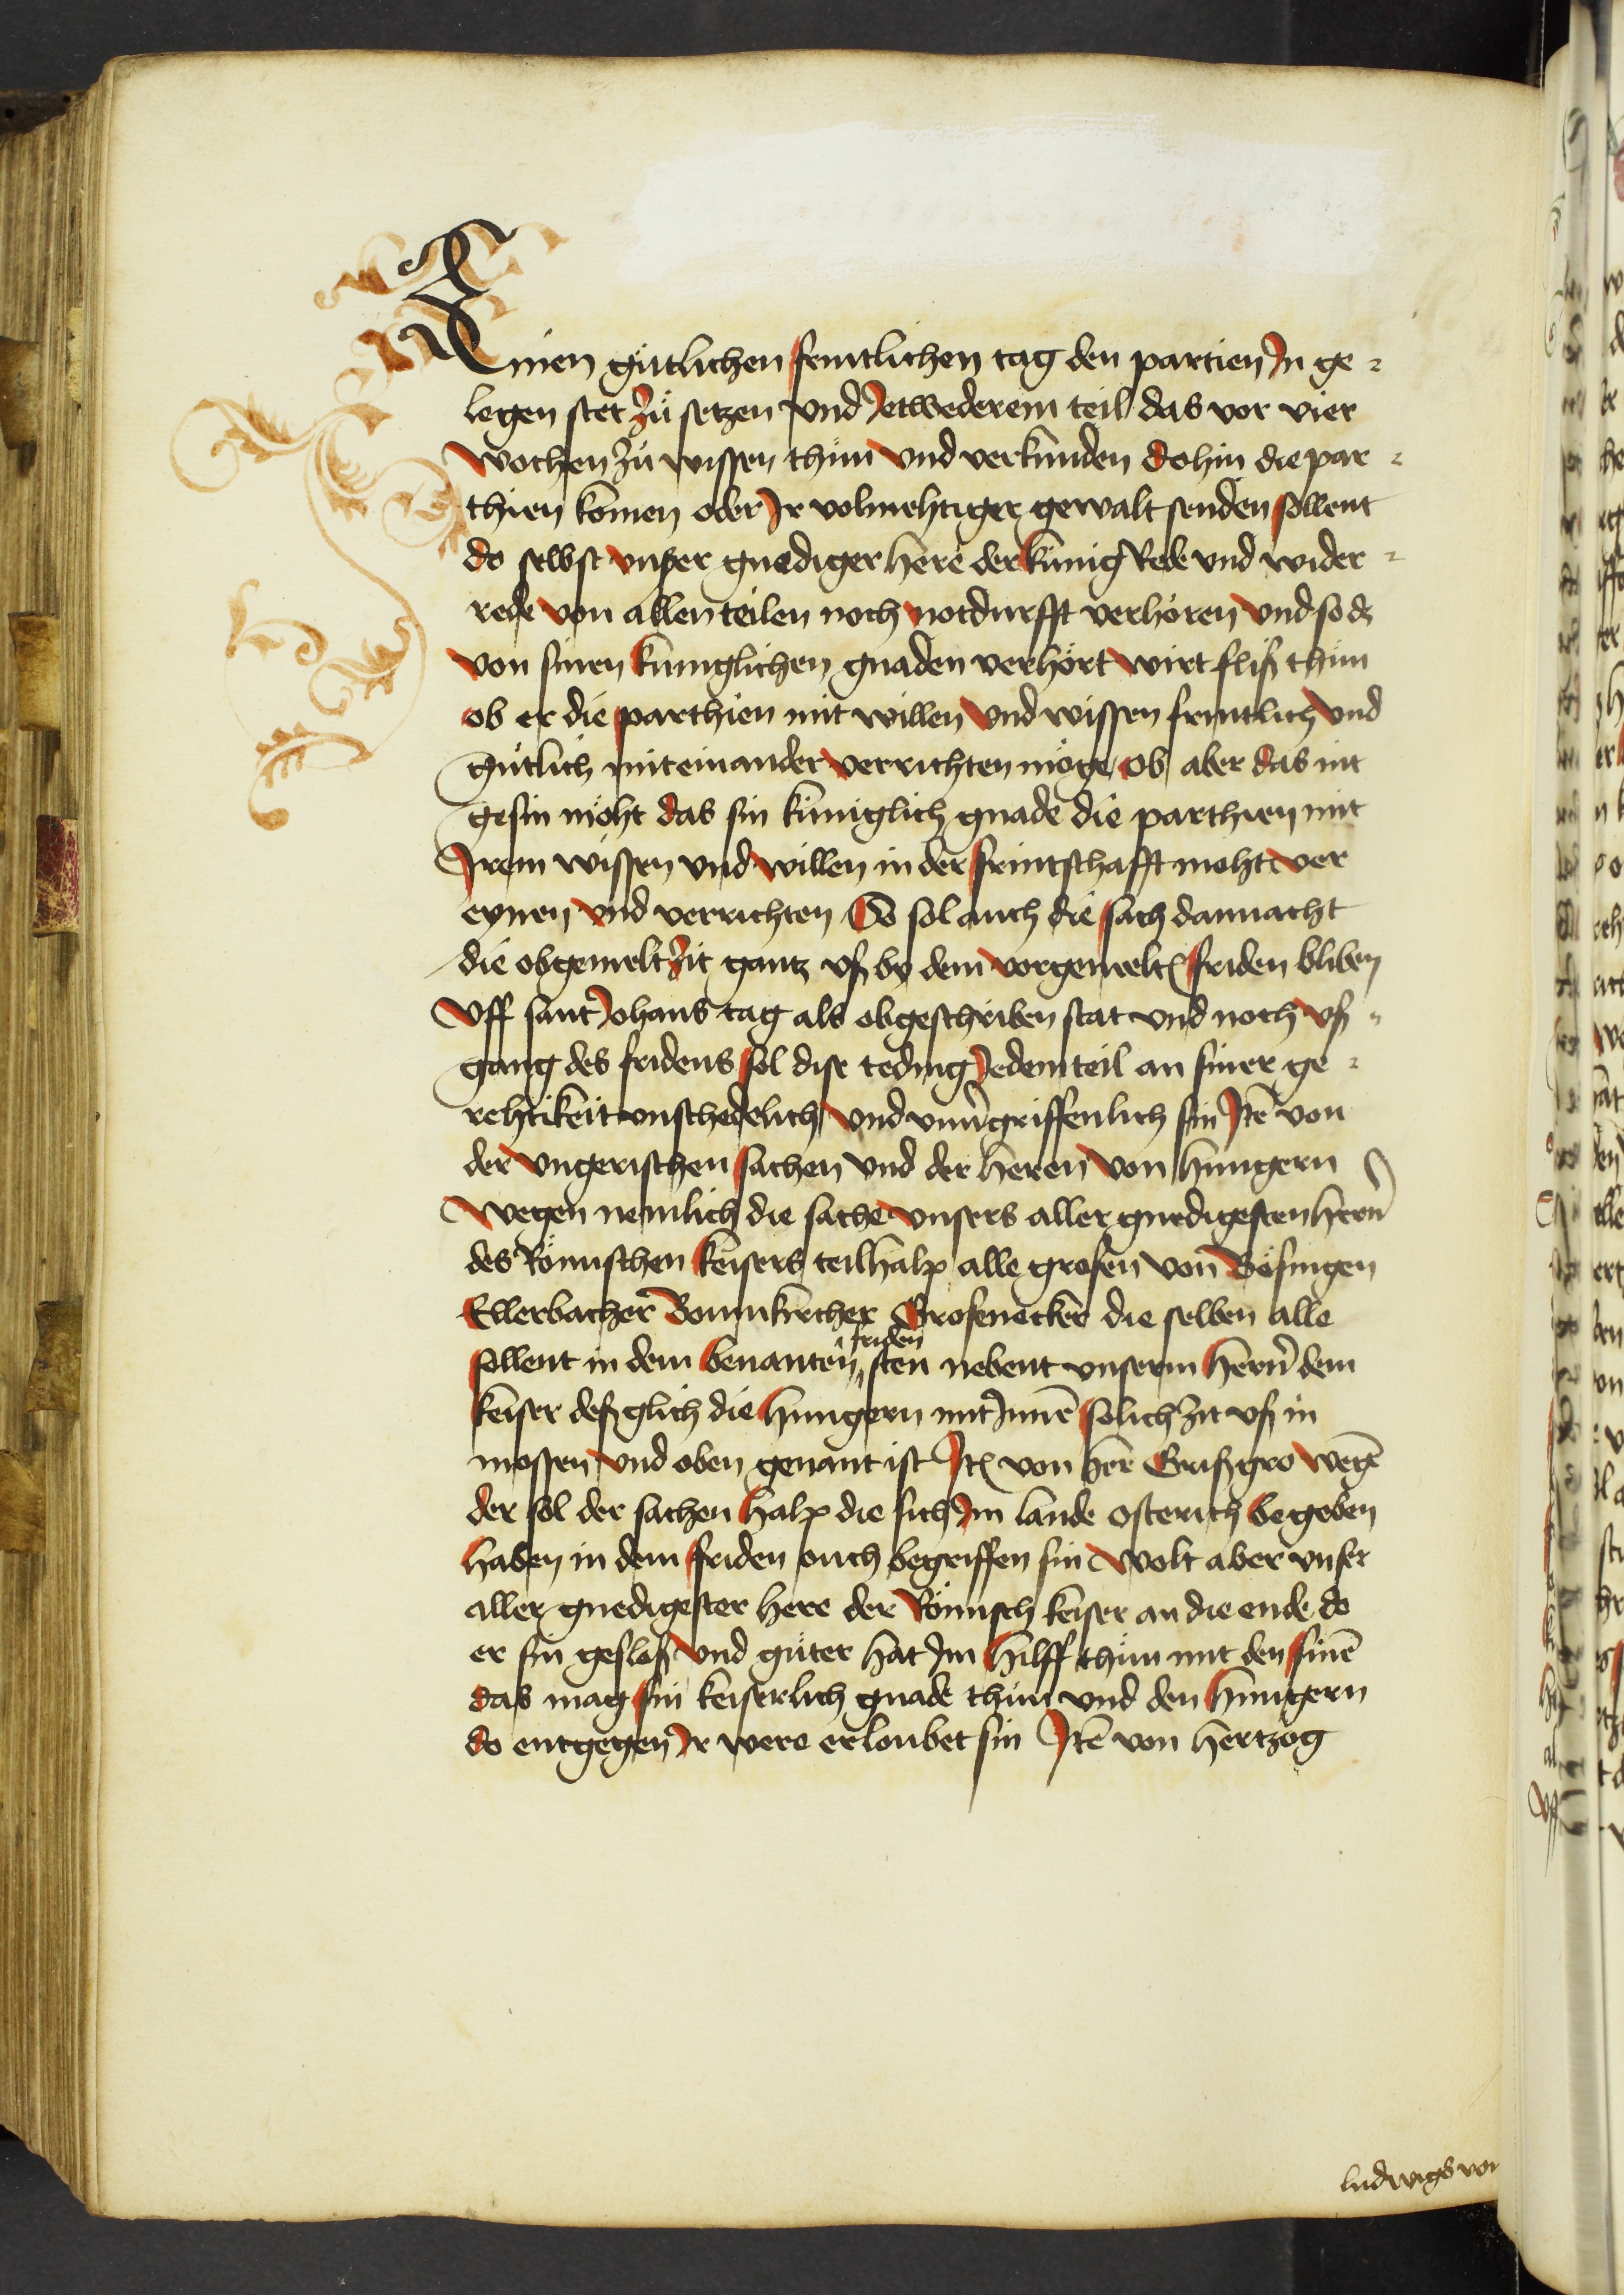 Einen gütlichen früntlichen tag den partien Jn ge=
legen stet zü setzen vnd Jetwederem teil das vor vier
wochen zü wissen thün vnd verkünden dohin die par=
thien komen oder Jr volmehtiger gewalt senden sollent
do selbst vnßer gnediger here der künig Rede vnd wider=
rede von allen teilen noch notdurfft verhören vnd so dz
von sinen küniglichen gnaden verhört wirt fliß thün
ob er die parthien mit willen vnd wissen früntlich vnd
gütlich mit einander verrichten möge ob aber das nit
gesin möht das sin küniglich gnade die parthien mit
Jrem wissen vnd willen in der früntschafft moht ver
eynen vnd verrichten So sol auch die sach dannacht
die obgemelt zit gantz vß by dem vorgemeltē friden bliben
Vff sant Johans tag als obgeschriben stat vnd noch vß=
gang des fridens sol dise teding Jedem teil an siner ge=
rehtikeit vnschedelich vnd vnuergriffenlich sin Jtē von
der vngerischen sachen vnd der heren von hungern
wegen nemlich die sache vnsers aller gnedigesten herñ
des Römischen keisers teilhalp alle grofen von Bösingen
Ellerbacher Bomkircher Grofenecker die selben alle
sollent in dem benanten friden sten nebent vnserm herñ dem
keiser deßglich die hungern mit Jnnē solich zit vß in
mossen vnd oben genant ist Jtē von her Grißgro wegē
der sol der sachen halp die sich Jm lande osterich begeben
haben in dem friden ouch begriffen sin wolt aber vnser
aller gnedigester here der Römisch keiser an die ende do
er sin gesloß vnd güter hat Jm hilff thün mit den sinē
das mag sin keiserlich gnade thün vnd den hungern
do entgegen Jr were erloubet sin Jtē von hertzog
ludwigs von